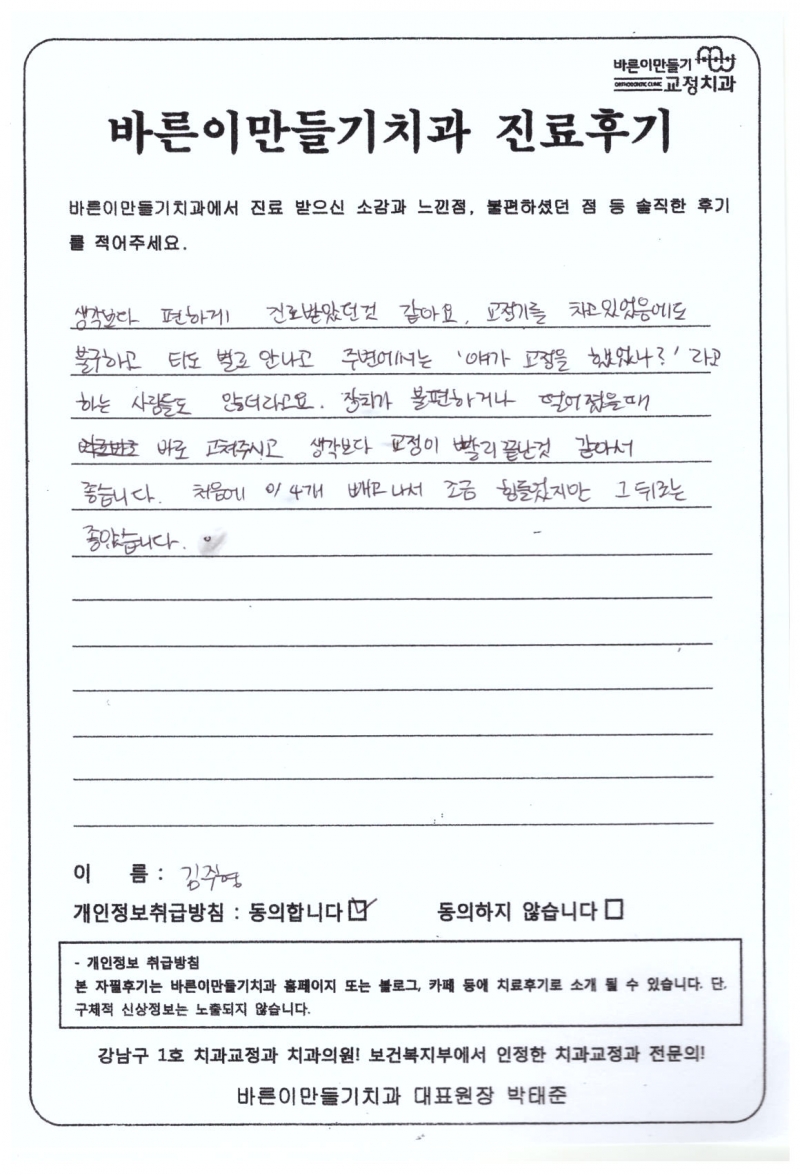 바른이만들기
ORTHODONTIC CLINIC 교정치과
바른이만들기치과 진료후기
바른이만들기치과에서 진료 받으신 소감과 느낀점, 불편하셨던 점 등 솔직한 후기
를 적어주세요.
생각보다 편하게 진료받았던것 같아요. 교정기를 차고있었음에도
불구하고 티도 별로 안나고 주변에서는 '얘가 교정을 했었나?' 라고
하는 사람들도 많더라고요. 장치가 불편하거나 떨어졌을때
바로 고쳐주시고 생각보다 교정이 빨리끝난것 같아서
좋습니다. 처음에 이 4개 빼고나서 조금 힘들었지만 그 뒤로는
좋았습니다.
이 름 : 김주영
개인정보취급방침 : 동의합니다 동의하지 않습니다
- 개인정보 취급방침
본 자필후기는 바른이만들기치과 홈페이지 또는 블로그, 카페 등에 치료후기로 소개 될 수 있습니다. 단,
구체적 신상정보는 노출되지 않습니다.
강남구 1호 치과교정과 치과의원! 보건복지부에서 인정한 치과교정과 전문의!
바른이만들기치과 대표원장 박태준